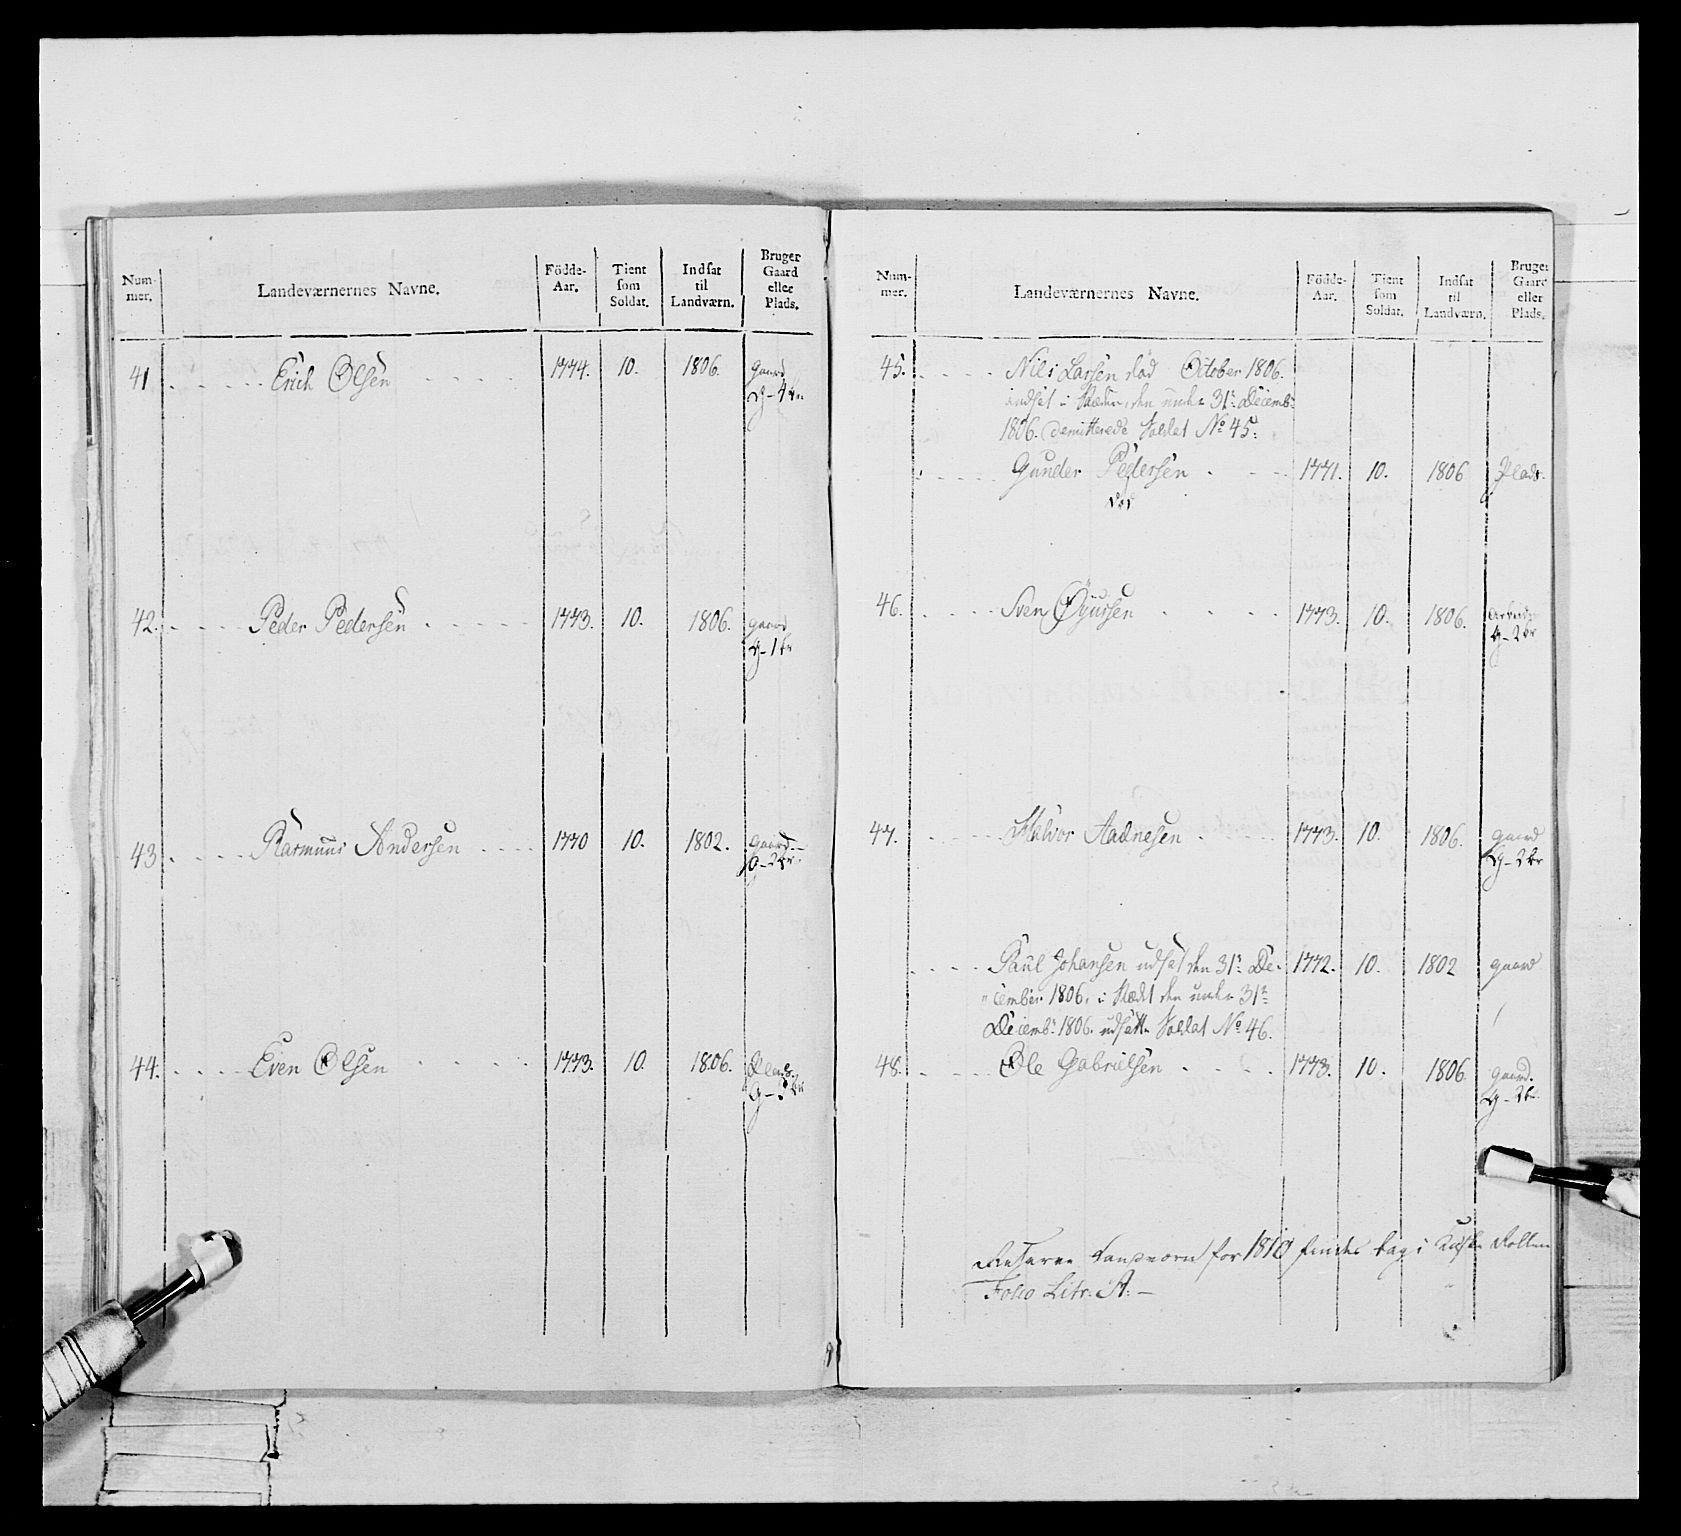 Num-
mer.
Landeværnernes Navne.
Födde-
Aar.
Tient
som
Soldat.
Indsat
til
Landværn.
Bruger
Gaard
eller
Plads.
41 Erich Olsen 1774. 10. 1806. gaard
G-4
42. Peder Pedersen 1773. 10. 1806. gaard
G-1
43. Rasmuus Andersen 1770 10. 1802. gaard
G-2
44. Even Olsen 1773. 10. 1806. Plads.
G-
Num-
mer.
Landeværnernes Navne.
Födde-
Aar.
Tient
som
Soldat.
Indsat
til
Landværn.
Bruger
Gaard
eller
Plads.
45. Nils Larsen død October 1806.
indsat i Stæden, den under 31te Decembr
1806. demitterede Soldat No 45:
Gunder Pedersen 1771. 10. 1806 Plads.
død
46. Sven 1773. 10. 1806.
G-2
47. Halvor Aadnesen 1773. 10. 1806. gaard
G-2
Paul Johansen udsat den 31te De- 1772. 10. 1802 gaard
cember 1806. i Stædet den under 31te
Decembr 1806. udsatte Soldat No 46.
48. Ole Gabrielsen 1773. 10. 1806. gaard.
G-2
for 1810 findes bag i Rollen
Folio Litr: A: —